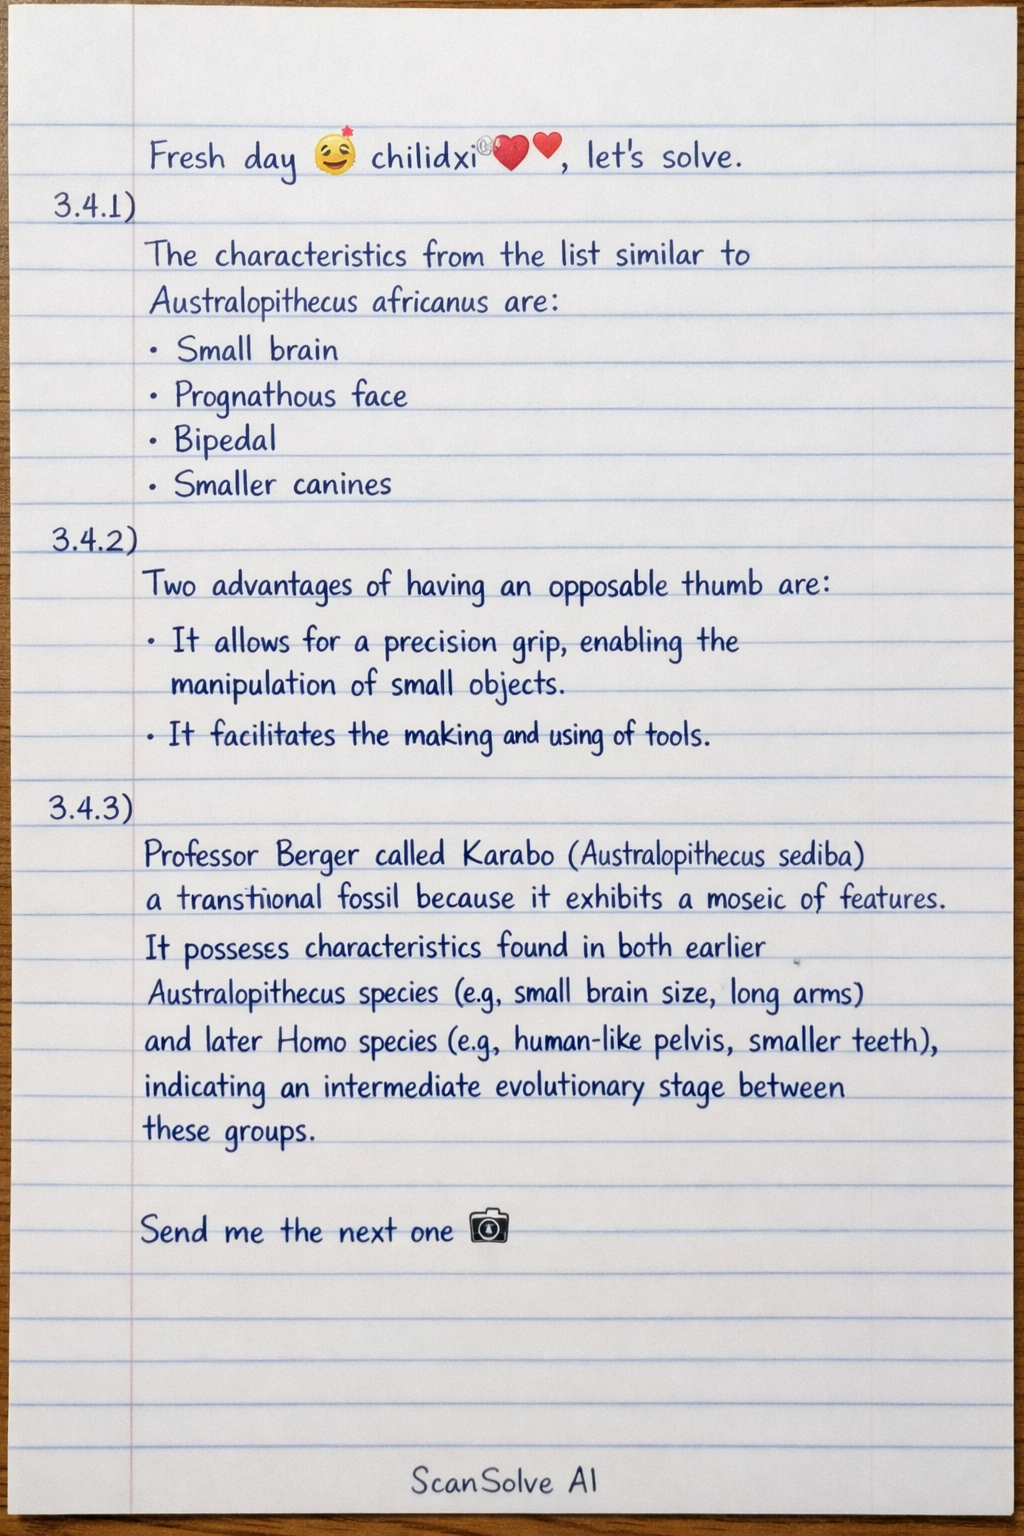 Fresh day 🥰 chilidxi ❤️❤️, let's solve.
3.4.1)
The characteristics from the list similar to
Australopithecus africanus are:
• Small brain
• Prognathous face
• Bipedal
• Smaller canines
3.4.2)
Two advantages of having an opposable thumb are:
• It allows for a precision grip, enabling the
manipulation of small objects.
• It facilitates the making and using of tools.
3.4.3)
Professor Berger called Karabo (Australopithecus sediba)
a transtiional fossil because it exhibits a moseic of features.
It posseses characteristics found in both earlier
Australopithecus species (e.g, small brain size, long arms)
and later Homo species (e.g, human-like pelvis, smaller teeth),
indicating an intermediate evolutionary stage between
these groups.
Send me the next one 📷
ScanSolve AI